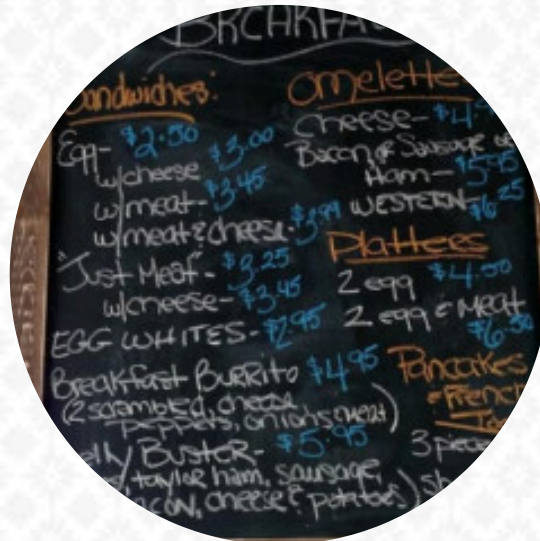 BREAKFA
Sandwiches:
Egg- $2.50
w/cheese $3.00
w/meat- $3.45
w/meat & cheese- $3.99
"Just Meat- $3.25
w/cheese- $3.45
EGG WHITES- $2.95
Breakfast BURRITO $4.95
(2 scrambled, cheese
peppers, onions, meat)
elly BUSTER- $5.95
taylor ham, sausage,
acon, cheese & potatoes)
Omelettes
Cheese- $4.
Bacon or Sausage or
Ham- $5.95
WESTERN- $6.25
Platters
2 egg $4.50
2 egg & Meat
$6.50
Pancakes
& French
3 piece